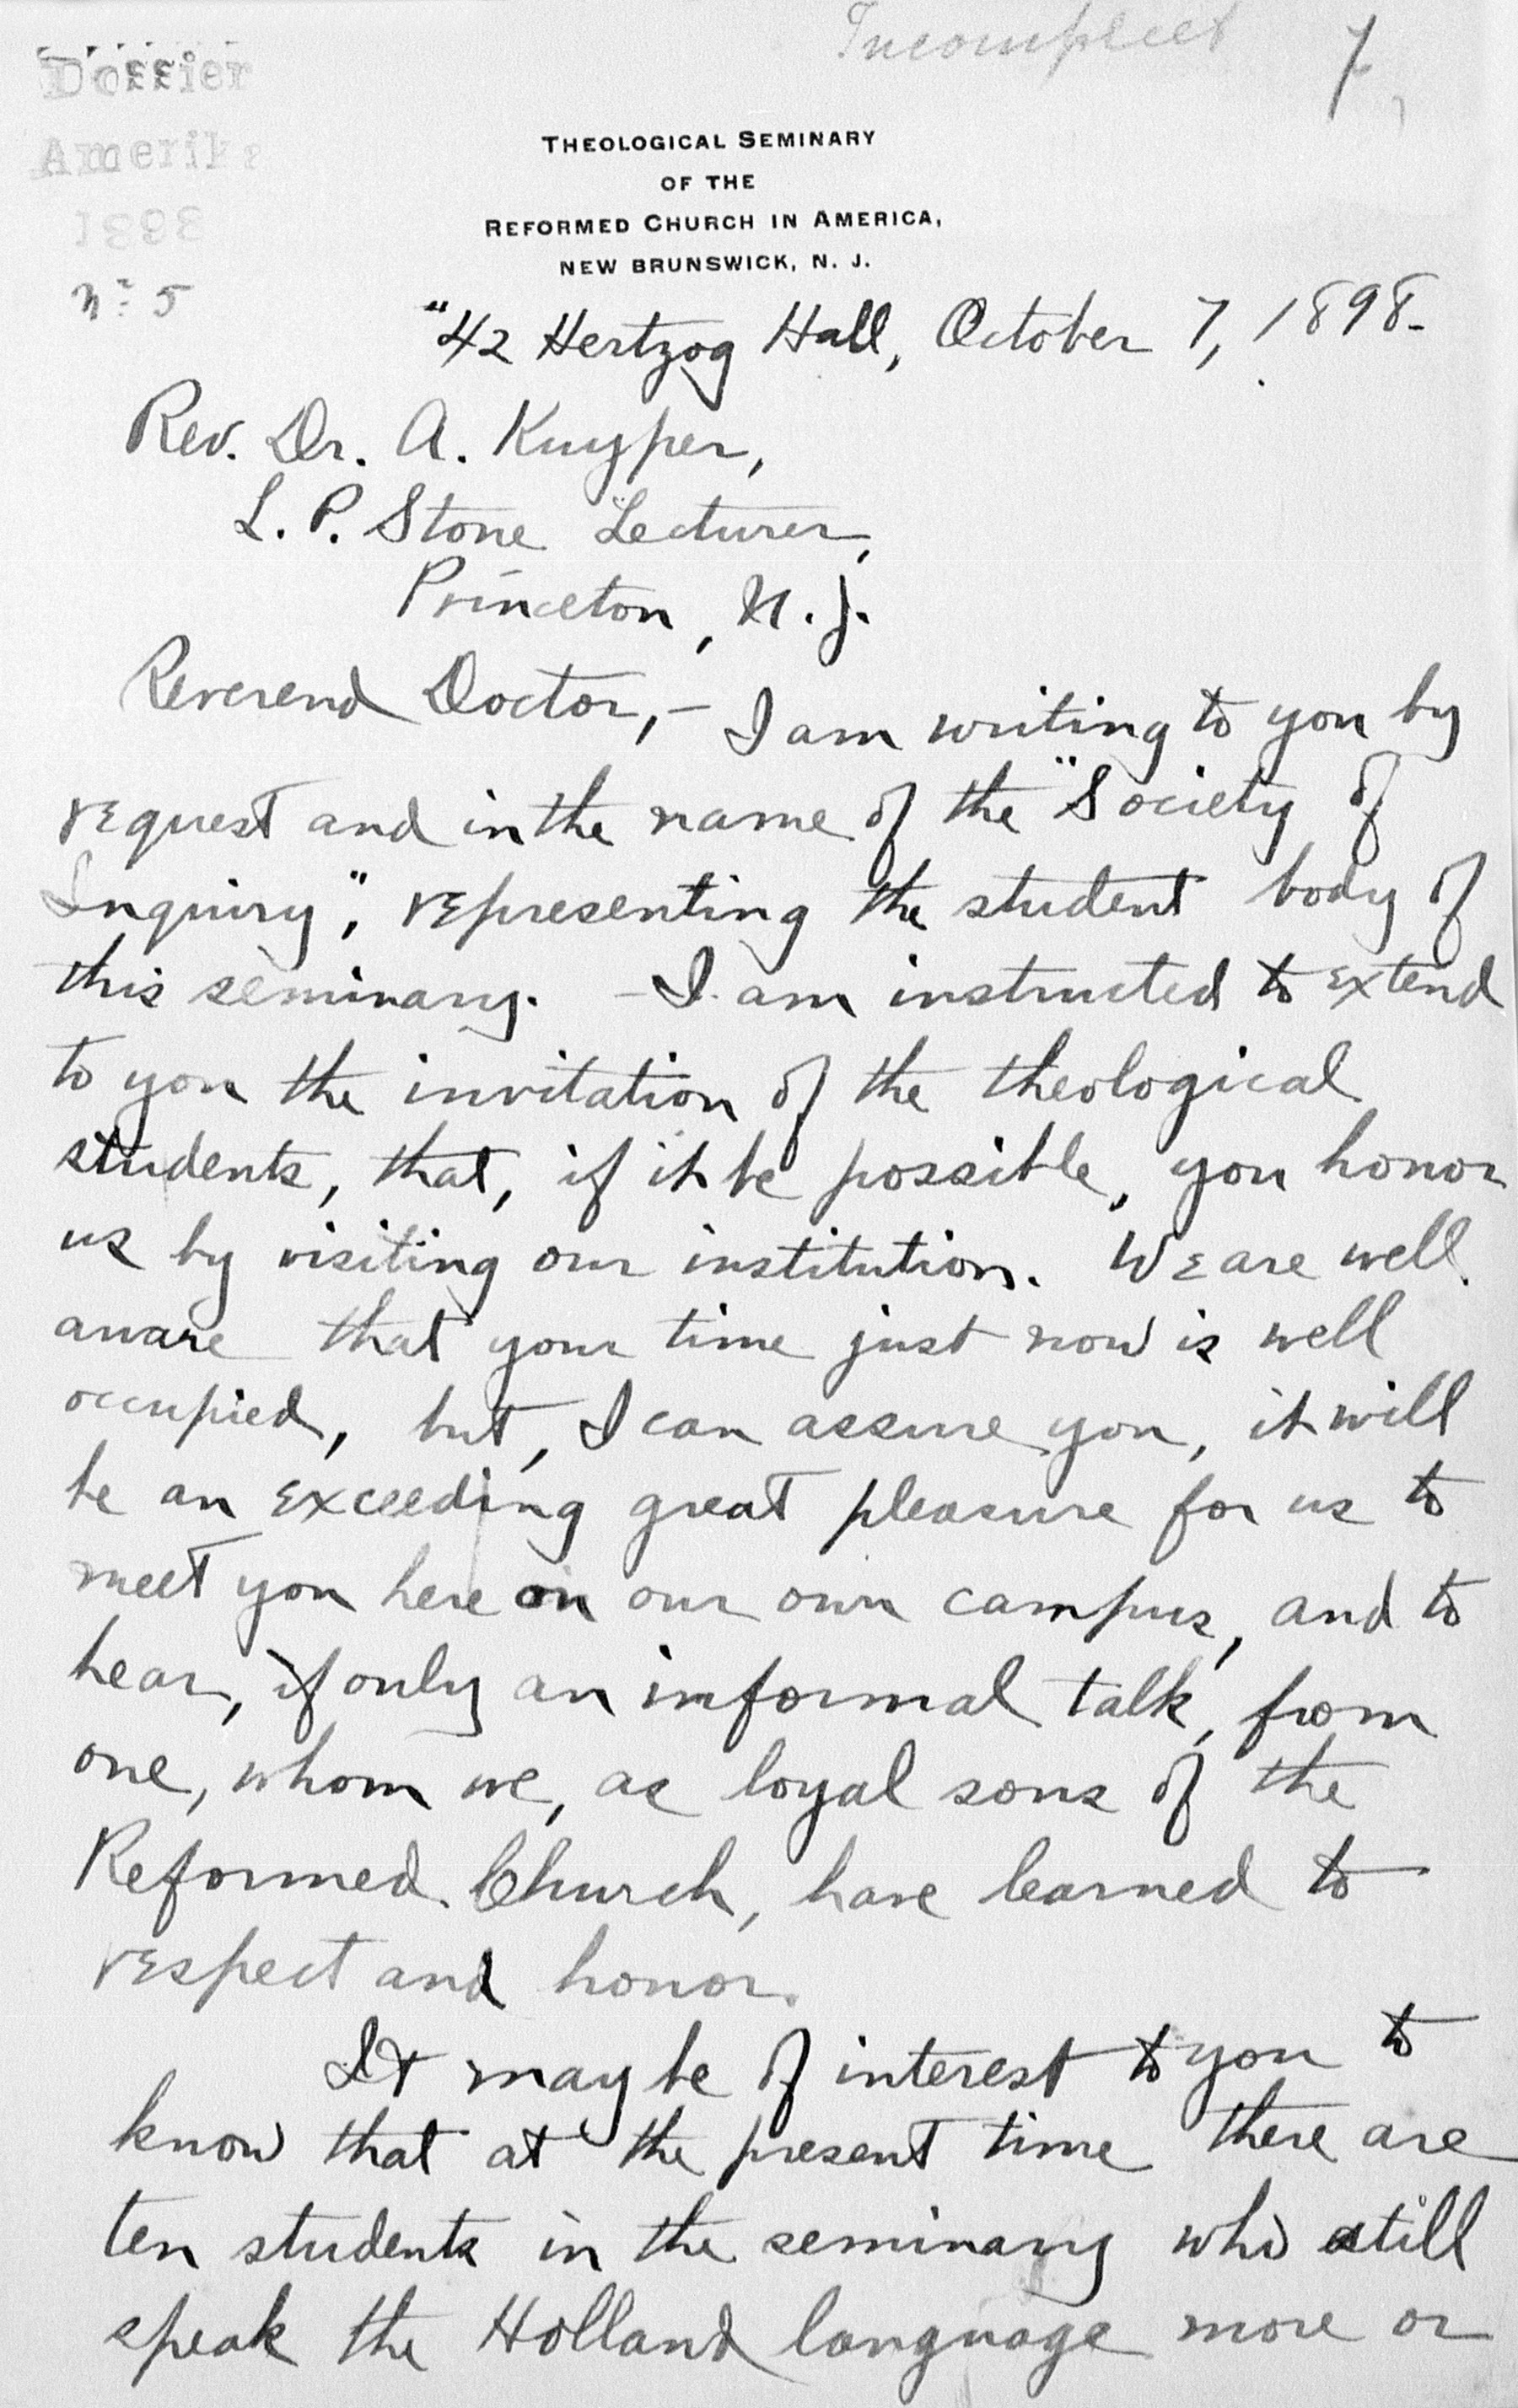 Incompleet 7
Dossier
Amerika
1898
No 5
THEOLOGICAL SEMINARY
OF THE
REFORMED CHURCH IN AMERICA,
NEW BRUNSWICK, N. J.
"42 Hertzog Hall, October 7, 1898.
Rev. Dr. A. Kuyper,
L. P. Stone Lecturer,
Princeton, N. J.
Reverend Doctor,- I am writing to you by
request and in the name of the "Society of
Inquiry", representing the student body of
this seminary. - I am instructed to extend
to you the invitation of the theological
students, that, if it be possible, you honor
us by visiting our institution. We are well
aware that your time just now is well
occupied, but, I can assure you, it will
be an exceeding great pleasure for us to
meet you here on our own campus, and to
hear, if only an informal talk, from
one, whom we, as loyal sons of the
Reformed Church, have learned to
respect and honor.
It may be of interest to you to
know that at the present time there are
ten students in the seminary who still
speak the Holland language more or